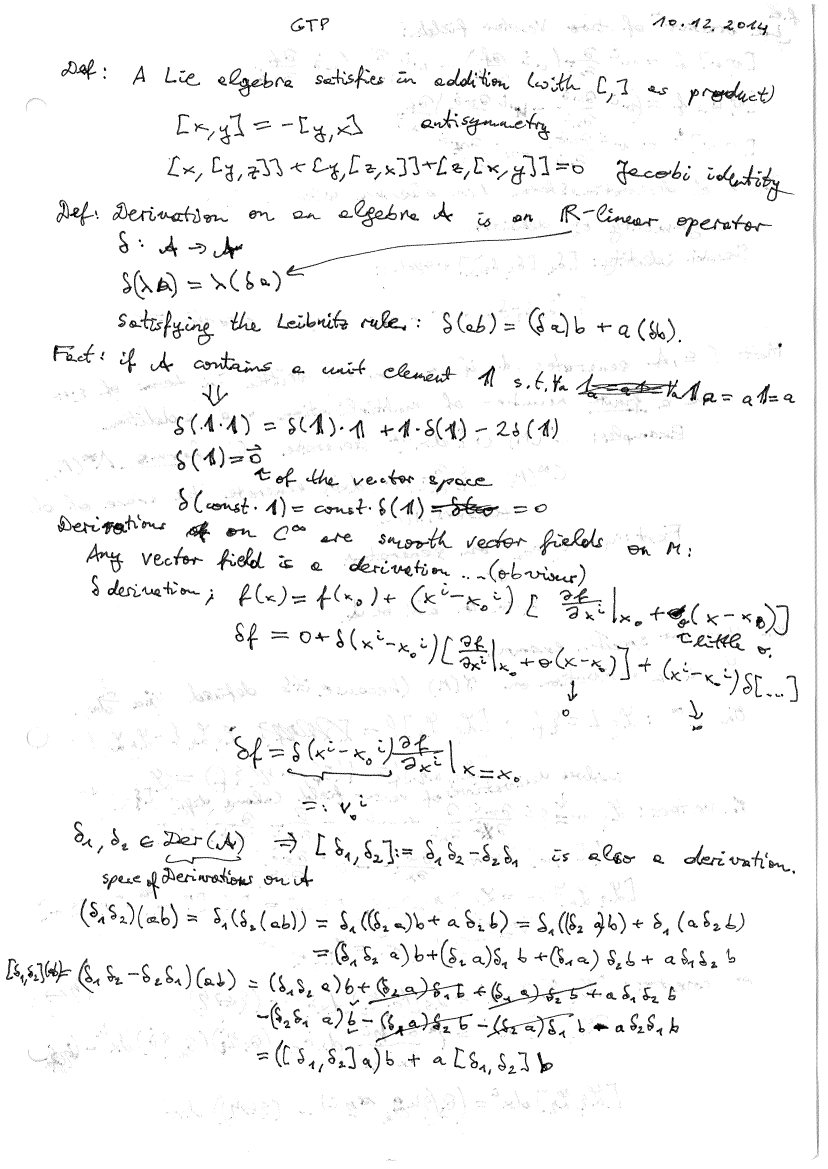 GTP 10.12.2014
Def: A Lie algebra satisfies in addition (with [,] as product)
[x,y] = -[y,x] antisymmetry
[x,[y,z]]+[y,[z,x]]+[z,[x,y]]=0 Jacobi identity
Def: Derivation on an algebra A is an ℝ-linear operator
δ: A → A
δ(λa) = λ(δa)
satisfying the Leibnitz rule: δ(ab) = (δa)b + a(δb).
Fact: if A contains a unit element 𝟙 s.t. ∀a 𝟙a = a𝟙 = a
⇓
δ(𝟙·𝟙) = δ(𝟙)·𝟙 + 𝟙·δ(𝟙) - 2δ(𝟙)
δ(𝟙) = 0⃗
↑ of the vector space
δ(const·𝟙) = const·δ(𝟙) = 0
Derivations on C^∞ are smooth vector fields on M:
Any vector field is a derivation ... (obvious)
δ derivation; f(x) = f(x₀) + (xⁱ-x₀ⁱ) [ ∂f/∂xⁱ|x₀ + o(x-x₀)]
↑ little o.
δf = 0 + δ(xⁱ-x₀ⁱ)[∂f/∂xⁱ|x₀ + o(x-x₀)] + (xⁱ-x₀ⁱ)δ[...]
↓ ↓
0
δf = δ(xⁱ-x₀ⁱ) ∂f/∂xⁱ|x=x₀
=: v₀ⁱ
δ₁, δ₂ ∈ Der(A) ⇒ [δ₁,δ₂] := δ₁δ₂-δ₂δ₁ is also a derivation.
space of Derivations on A
(δ₁δ₂)(ab) = δ₁(δ₂(ab)) = δ₁((δ₂a)b + aδ₂b) = δ₁((δ₂a)b) + δ₁(aδ₂b)
= (δ₁δ₂ a)b + (δ₂a)δ₁b + (δ₁a)δ₂b + aδ₁δ₂b
[δ₁,δ₂](ab) = (δ₁δ₂-δ₂δ₁)(ab) = (δ₁δ₂a)b + (δ₂a)δ₁b + (δ₁a)δ₂b + aδ₁δ₂b
-(δ₂δ₁a)b - (δ₁a)δ₂b - (δ₂a)δ₁b - aδ₂δ₁b
= ([δ₁,δ₂]a)b + a[δ₁,δ₂]b